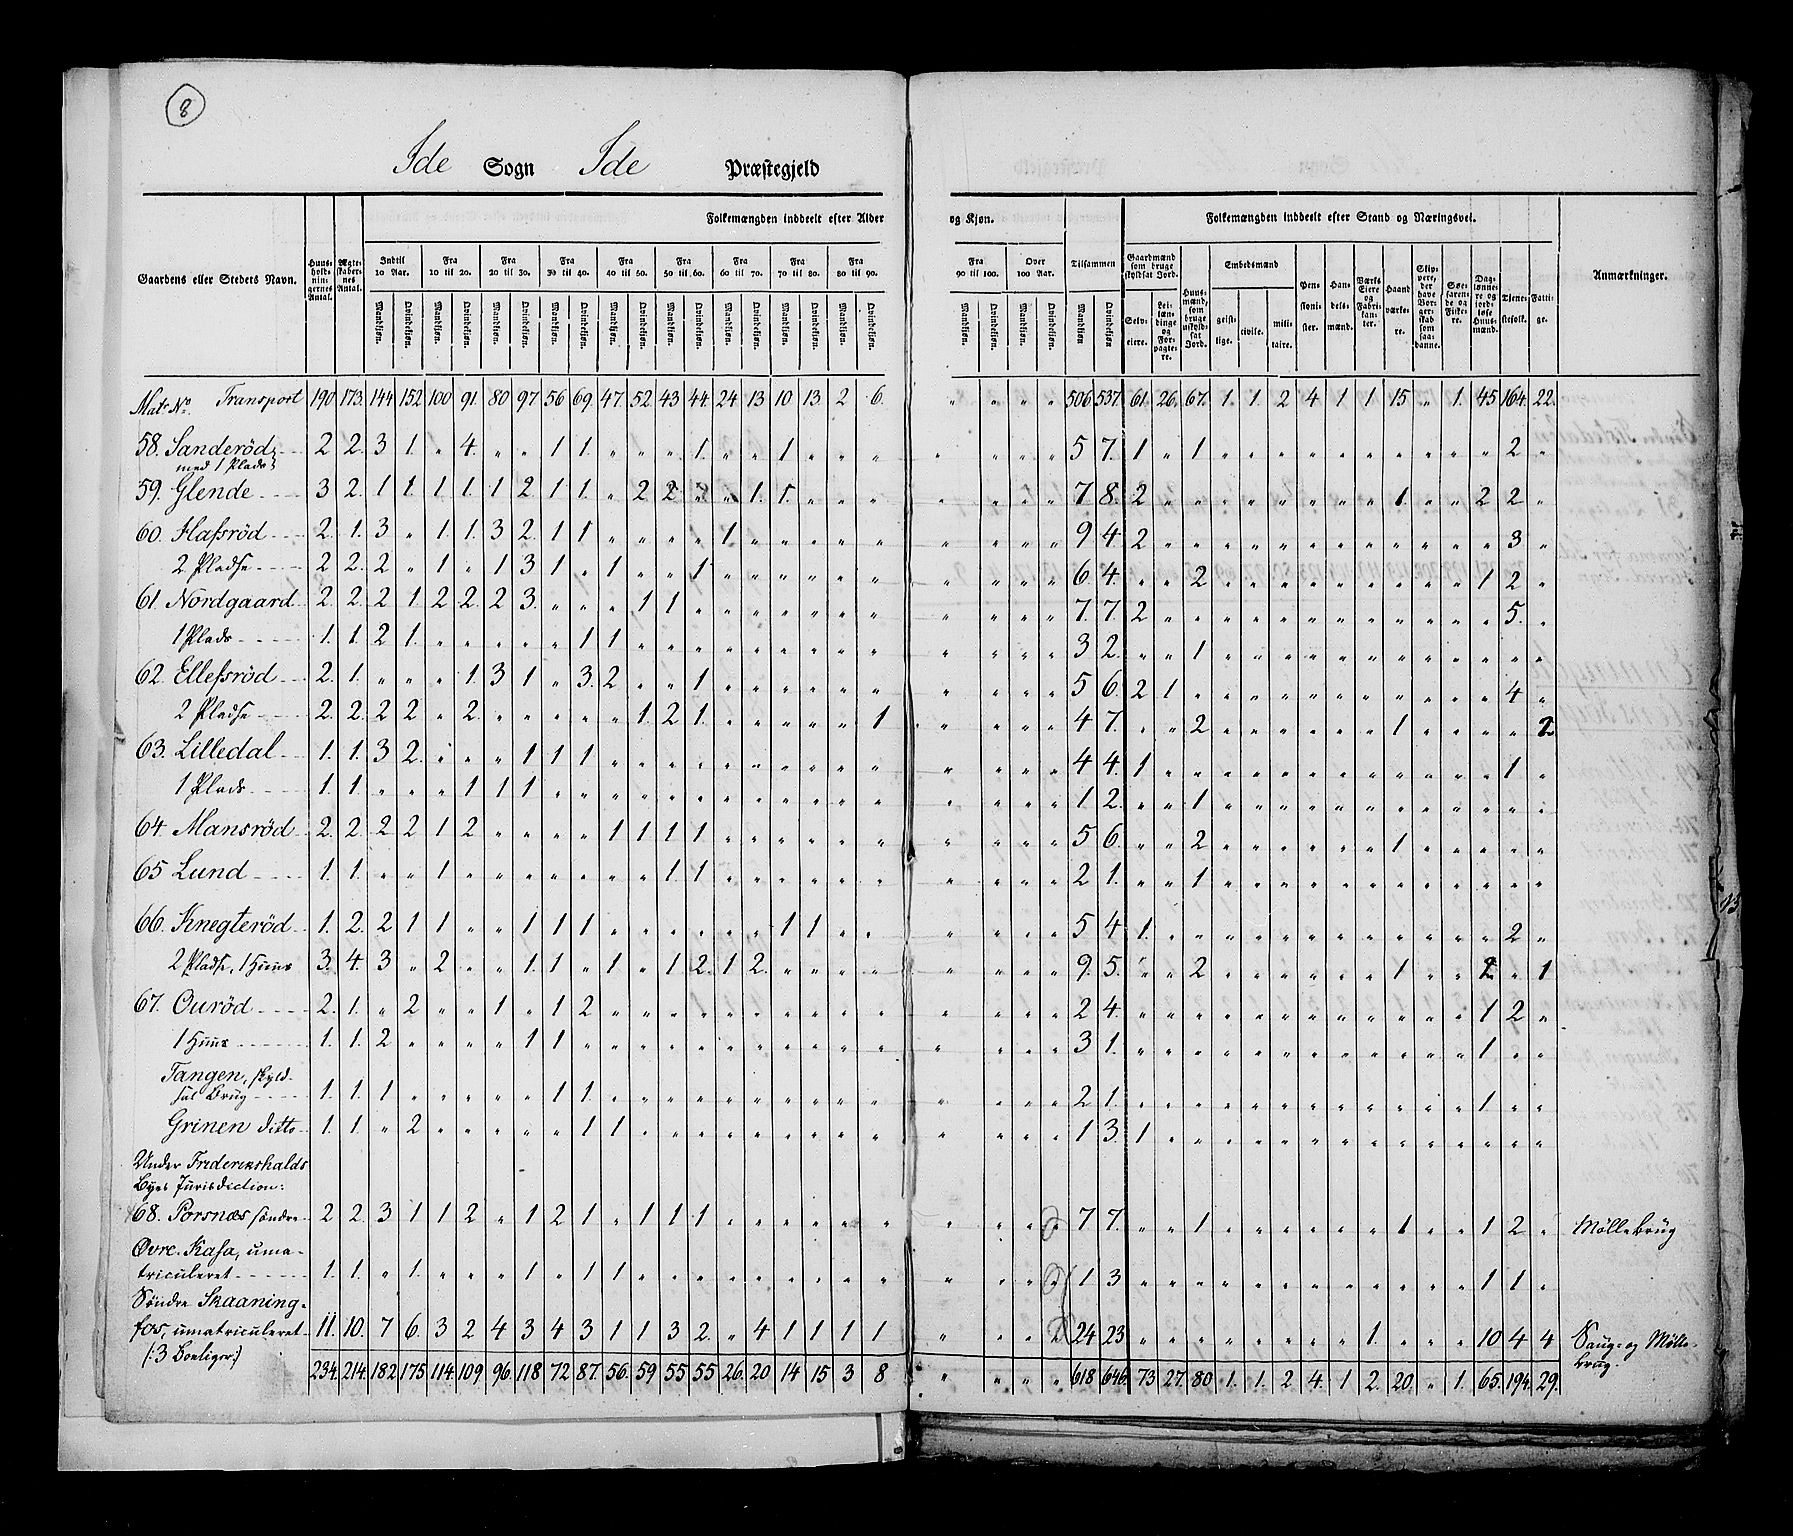 8
Ide Sogn Ide Præstegjeld
Gaardens eller Steders Navn. Huus-holdnin-gernes Antal. Ægte-skabernes Antal. Folkemængden inddeelt efter Alder og Kjøn. Tilsammen Folkemængden inddeelt efter Stand og Næringsvei. Anmærkninger.
Indtil 10 Aar. Fra 10 til 20. Fra 20 til 30. Fra 30 til 40. Fra 40 til 50. Fra 50 til 60. Fra 60 til 70. Fra 70 til 80. Fra 80 til 90. Fra 90 til 100. Over 100 Aar.
Gaardmænd som bruge skyldsat Jord. Huusmænd, som bruge uskyldsat Jord. Embedsmænd Pensionister. Handelsmænd. Værks Eiere og Fabrikanter. Haandværkere. Skippere, der have Borgerskab som saadanne. Søefarende og Fiskere. Daglønnere og jordløse Huusmænd. Tjenestefolk. Fattige.
Mandkjøn. Qvindekjøn. Selveiere. Leilændinge og Forpagtere. geistlige. civile. militaire.
Matr No. Transport 190 173. 144 152 100 91. 80 97. 56 69. 47. 52. 43 44. 24 13. 10. 13. 2 6. „ „ „ „ 506 537. 61. 26. 67. 1. 1. 2 4 1 1. 15 „ 1. 45 164. 22.
58. Sanderöd 2 2. 3 1. „ 4. „ „ 1 1. „ „ „ 1. „ „ 1 „ „ „ „ „ „ „ 5 7. 1 „ 1 „ „ „ „ „ „ „ „ „ „ 2 „
med 1 Plads
59. Glende 3 2. 1 1. 1 1. 1 2. 1 1. „ 2 2 „ „ 1. 1. „ „ „ „ „ „ „ 7 8. 2 „ „ „ „ „ „ „ „ 1. „ „ 2 2 „
60. Hafsröd 2. 1. 3 „ 1 1. 3 2. 1 1 „ „ „ „ 1 „ „ „ „ „ „ „ „ „ 9 4. 2 „ „ „ „ „ „ „ „ „ „ „ „ 3 „
2 Pladse 2 2. 2 „ 1 „ 1 3 1 „ 1 „ „ 1 „ „ „ „ „ „ „ „ „ „ 6 4. „ „ 2 „ „ „ „ „ „ „ „ „ 1 2 „
61. Nordgaard 2. 2. 2 1 2 2. 2 3. „ „ „ 1 1 „ „ „ „ „ „ „ „ „ „ „ 7. 7. 2 „ „ „ „ „ „ „ „ „ „ „ „ 5. „
1 Plads 1. 1. 2 1. „ „ „ „ „ 1 1 „ „ „ „ „ „ „ „ „ „ „ „ „ 3 2. „ „ 1 „ „ „ „ „ „ „ „ „ „ „ „
62. Ellefsröd 2. 1. „ „ „ 1. 3 1 „ 3. 2 „ „ 1 „ „ „ „ „ „ „ „ „ „ 5 6. 2 1 „ „ „ „ „ „ „ „ „ „ „ 4 „
2 Pladse 2. 2. 2 2 „ 2. „ „ „ „ „ 1. 2 1. „ „ „ „ „ 1 „ „ „ „ 4 7. „ „ 2 „ „ „ „ „ „ 1 „ „ „ „ 2
63. Lilledal 1. 1. 3 2. „ „ „ 1 1 1. „ „ „ „ „ „ „ „ „ „ „ „ „ „ 4 4. 1 „ „ „ „ „ „ „ „ „ „ „ „ 1 „
1 Plads 1. 1 „ „ „ 1 1 1 „ „ „ „ „ „ „ „ „ „ „ „ „ „ „ „ 1 2. „ „ 1 „ „ „ „ „ „ „ „ „ „ „ „
64. Mansröd 2. 2. 2 2 1 2 „ „ „ „ 1 1 1 1 „ „ „ „ „ „ „ „ „ „ 5 6. „ „ 2 „ „ „ „ „ „ 1 „ „ „ „ „
65 Lund 1. 1. „ „ 1 „ „ „ „ „ „ „ 1 1. „ „ „ „ „ „ „ „ „ „ 2 1. „ „ 1 „ „ „ „ „ „ „ „ „ „ „ „
66. Knegteröd 1. 2. 2 1 1 „ „ 1 1 1. „ „ „ „ „ „ 1 1. „ „ „ „ „ „ 5 4 1. „ „ „ „ „ „ „ „ „ „ „ „ 2 „
2 Pladse, 1 Huus 3. 4. 3 „ 2 „ „ 1. 1 „ 1 „ 1 2. 1 2. „ „ „ „ „ „ „ „ 9. 5. „ „ 2 „ „ „ „ „ „ 1 „ „ 2 „ 1
67. Ouröd 2. 1. „ 2 „ „ 1 „ 1 2 „ „ „ „ „ „ „ „ „ „ „ „ „ „ 2 4. „ „ „ „ „ „ „ „ „ „ „ „ 1 2 „
1 Huus 1. 1. 2 „ „ „ „ 1 1. „ „ „ „ „ „ „ „ „ „ „ „ „ „ „ 3 1. „ „ „ „ „ „ „ „ „ „ „ „ 1 „ „
Tangen, skyld-
sat Brug 1. 1. 1 „ „ „ „ „ 1 1. „ „ „ „ „ „ „ „ „ „ „ „ „ „ 2 1. „ „ „ „ „ „ „ „ „ „ „ „ 1 „ „
Grinen ditto 1. 1. „ 2 „ „ „ „ „ 1 1 „ „ „ „ „ „ „ „ „ „ „ „ „ 1 3. 1 „ „ „ „ „ „ „ „ „ „ „ „ „ „
Under Frederikshalds
Byes Jurisdiction:
68. Porsnæs söndre 2 2. 3 1 1 2 „ 1 2 1 „ 1 1 1. „ „ „ „ „ „ „ „ „ „ 7 7. „ „ 1 „ „ „ „ „ „ 1 „ „ 1 2 „ Möllebrug
Øvre Kasa, uma-
triculeret 1. 1. „ 1. „ „ „ 1 „ 1 1 „ „ „ „ „ „ „ „ „ „ „ „ „ 1 3 „ „ „ „ „ „ „ „ „ „ „ „ 1 1. „
Söndre Skaaning-
fos, umatriculeret 11. 10. 7 6. 3 2 4 3 4 3 1 1 3 2. „ 4 1 1 1 1 „ „ „ 24 23 „ „ „ „ „ „ „ „ 1. „ „ „ 10 4 4 Saug- og Mölle-
brug.
(: 3 Boeliger:)
234. 214. 182 175 114. 109 96. 118 72 87. 56. 59 55 55 26. 20 14 15 3 8 „ „ „ „ 618 646. 73 27. 80 1. 1. 2 4. 1 2. 20 „ 1. 65. 194. 29.